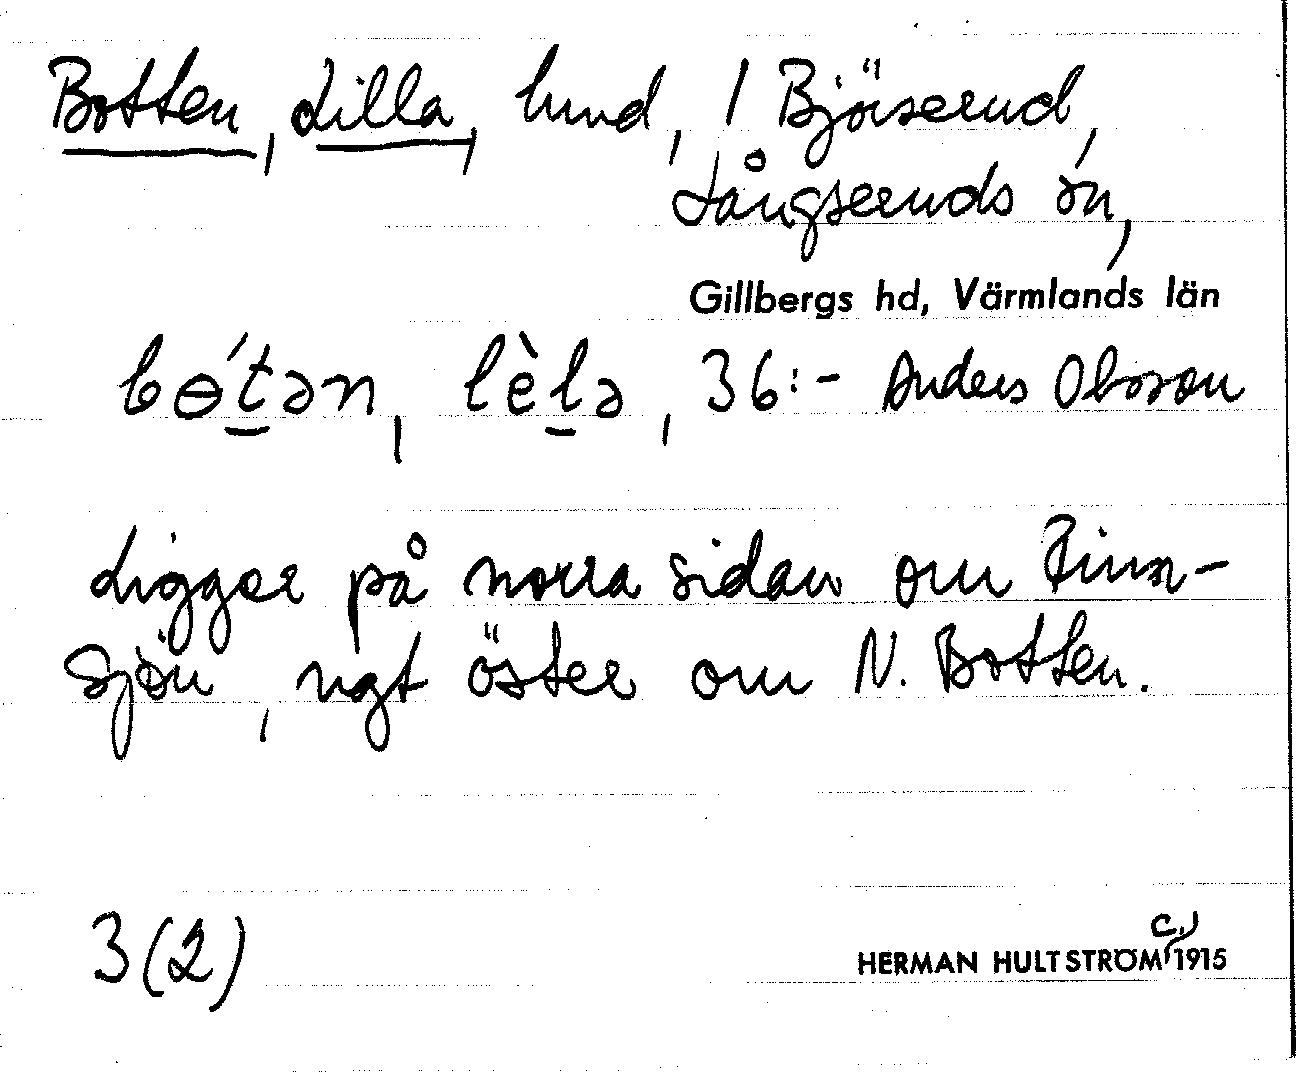 Botten, Lilla, lund, / Björserud,
Långseruds sn,
Gillbergs hd, Värmlands län
bɵ́tən, lèlə, 36:- Anders Olsson
Ligger på norra sidan om Rinn-
sjön, ngt öster om N. Botten.
3(2)
HERMAN HULTSTRÖM c. 1915